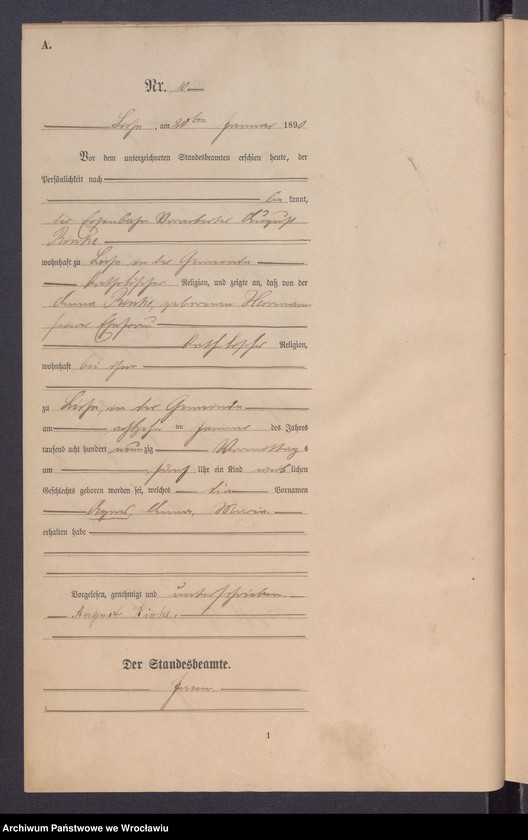 A.
Nr. 10
am 20ten Januar 1890
Vor dem unterzeichneten Standesbeamten erschien heute, der
Persönlichkeit nach
be kannt,
der Eisenbahn Vorarbeiter August
wohnhaft zu in der Gemeinde
katholischer Religion, und zeigte an, daß von der
Anna geborenen Hermann
seiner Ehefrau
katholischer Religion,
wohnhaft bei ihm
zu in der Gemeinde
am achtzehn ten Januar des Jahres
tausend acht hundert neunzig Vormittags
um fünf Uhr ein Kind weiblichen
Geschlechts geboren worden sei, welches die Vornamen
Agnes, Anna, Maria
erhalten habe
Vorgelesen, genehmigt und unterschrieben.
August
Der Standesbeamte.
1
Archiwum Państwowe we Wrocławiu